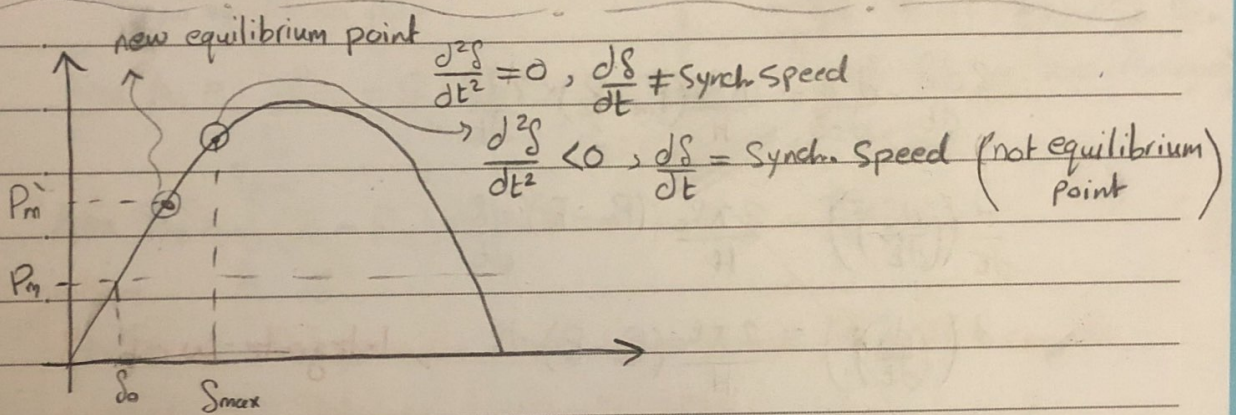 new equilibrium point
d²δ/dt² = 0 , dδ/dt ≠ Synch. Speed
d²δ/dt² < 0 , dδ/dt = Synch. Speed (not equilibrium point)
Pm`
Pm
δo
δmax